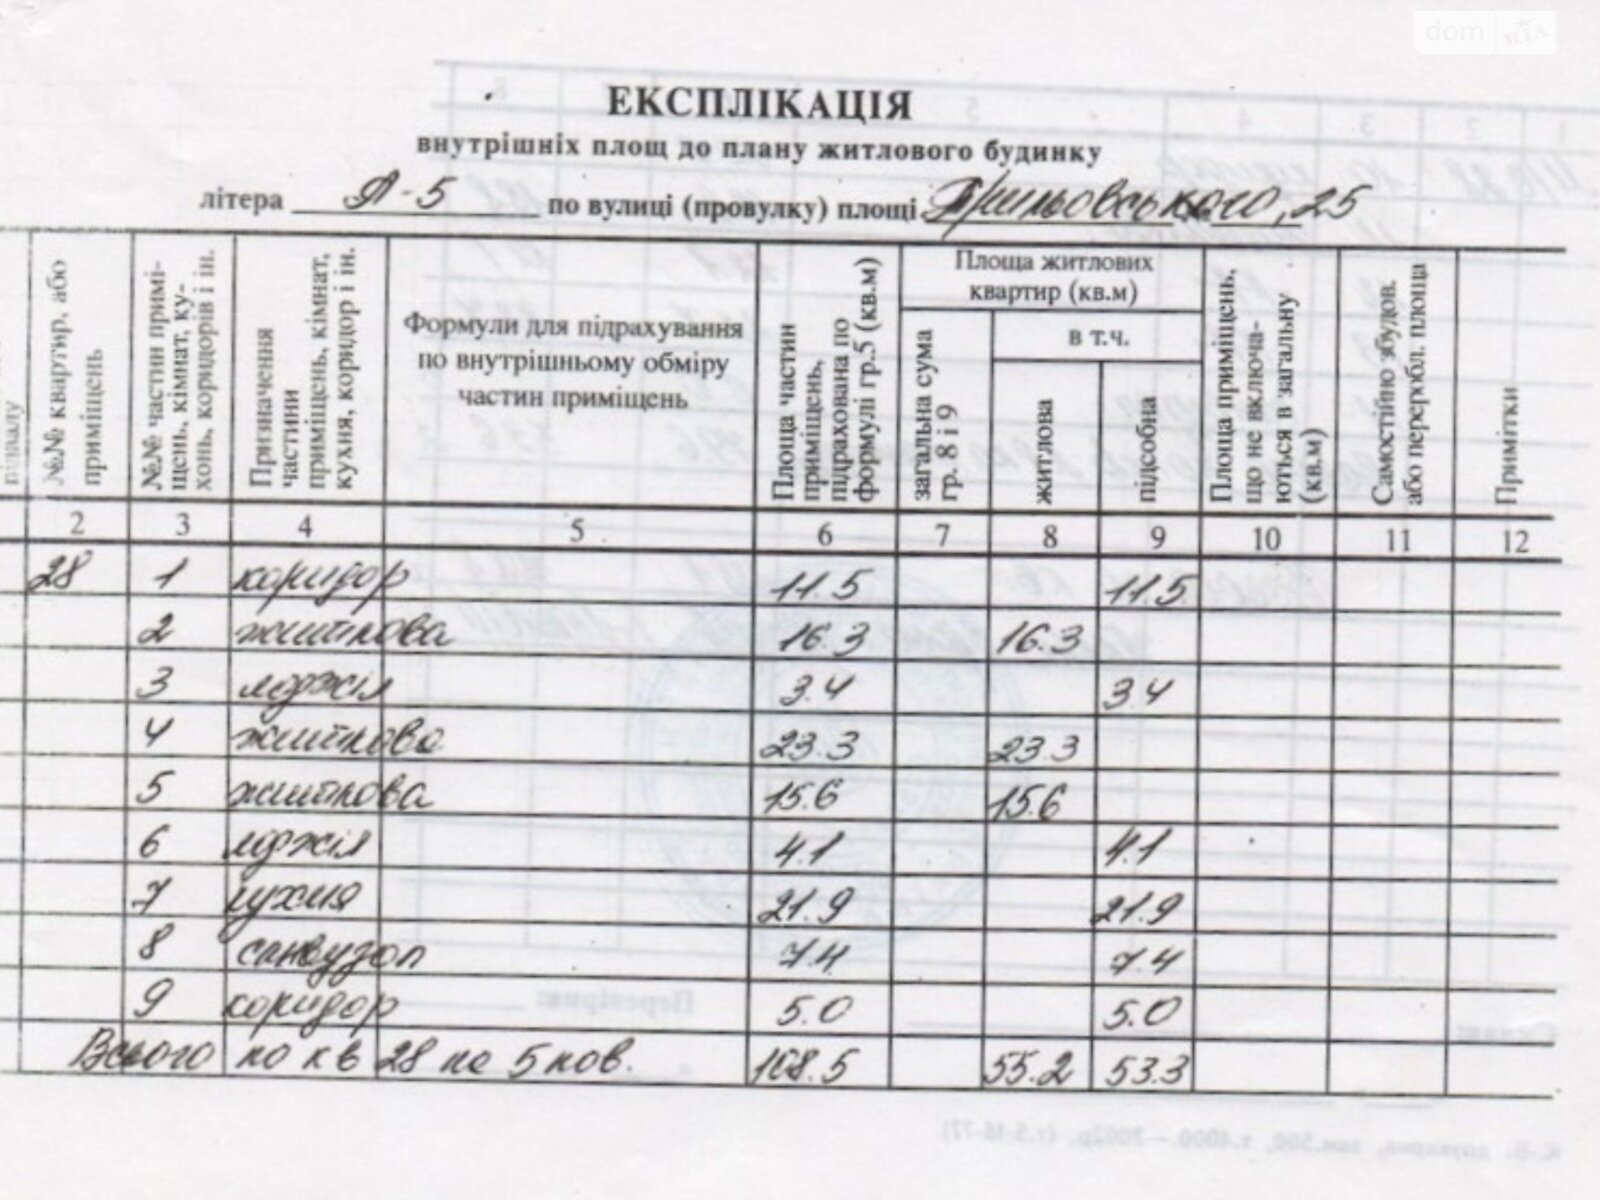 dom RIA
ЕКСПЛІКАЦІЯ
внутрішніх площ до плану житлового будинку
літера А-5 по вулиці (провулку) площі Трильовського, 25
№№ квартир, або приміщень
№№ частин примі-
щень, кімнат, ку-
хонь, коридорів і ін.
Призначення
частини
приміщень, кімнат,
кухня, коридор і ін.
Формули для підрахування
по внутрішньому обміру
частин приміщень
Площа частин
приміщень,
підрахована по
формулі гр.5 (кв.м)
Площа житлових
квартир (кв.м)
загальна сума
гр. 8 і 9
в т.ч.
житлова
підсобна
Площа приміщень,
що не включа-
ються в загальну
(кв.м)
Самостійно збудов.
або переробл. площа
Примітки
2 3 4 5 6 7 8 9 10 11 12
28 1 коридор 11.5 11.5
2 житлова 16.3 16.3
3 лоджія 3.4 3.4
4 житлова 23.3 23.3
5 житлова 15.6 15.6
6 лоджія 4.1 4.1
7 кухня 21.9 21.9
8 санвузол 7.4 7.4
9 коридор 5.0 5.0
Всього по кв 28 на 5 пов. 108.5 55.2 53.3